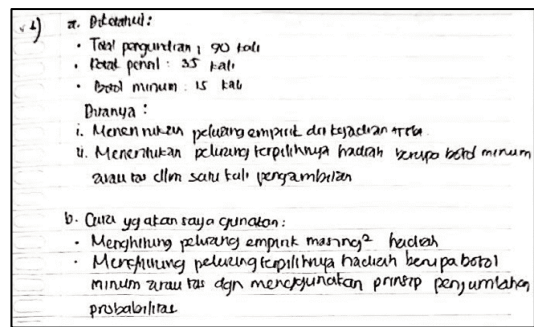 1) a. Diketahui:
• Total pengundian : 90 kali
• Kotak pensil : 35 kali
• Botol minum : 15 kali
Ditanya :
i. Menentukan peluang empirik dri kejadian
ii. Menentukan peluang terpilihnya hadiah berupa botol minum
atau tas dlm satu kali pengambilan
b. Cara yg akan saya gunakan:
• Menghitung peluang empirik masing² hadiah
• Menghitung peluang terpilihnya hadiah berupa botol
minum atau tas dgn menggunakan prinsip penjumlahan
probabilitas